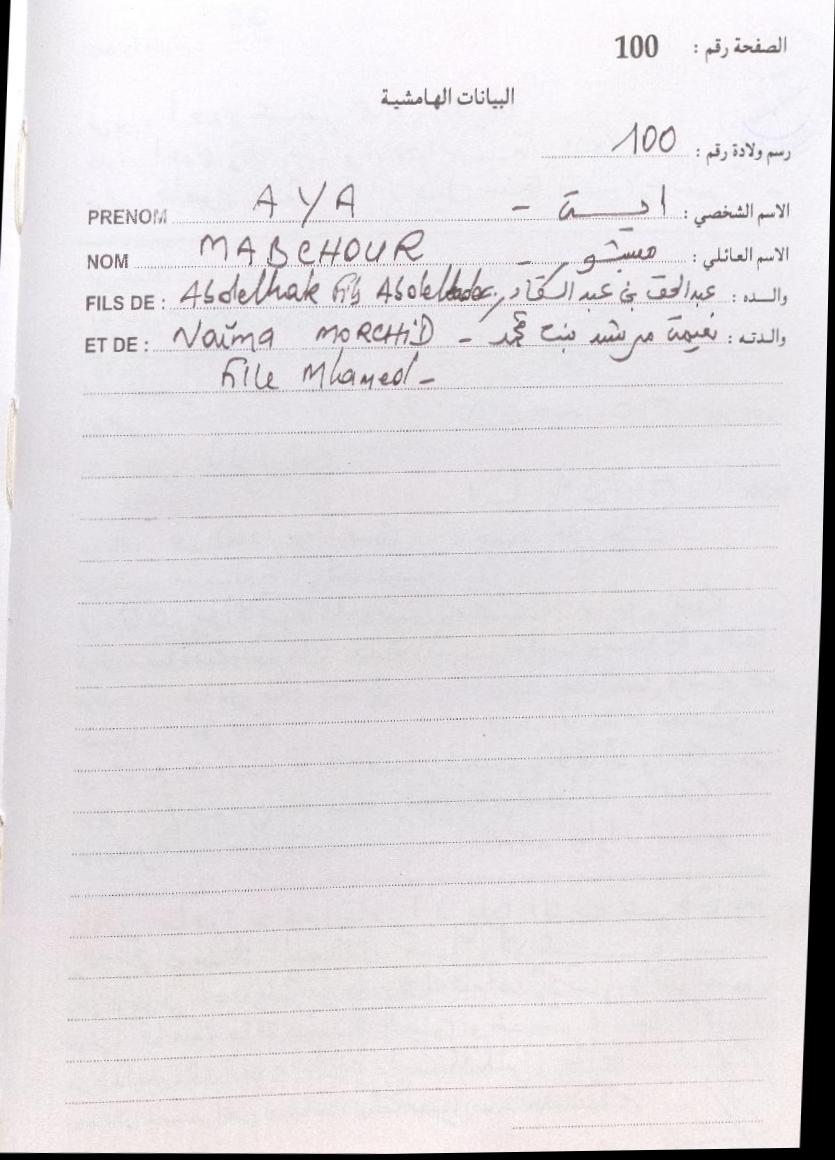 الصفحة رقم : 100
البيانات الهامشية
رسم ولادة رقم : 100
PRENOM AYA - ايــة الاسم الشخصي :
NOM MABCHOUR - مبشور الاسم العائلي :
FILS DE : Abdelhak Fils Abdelkader عبد الحق بن عبد القادر والــده :
ET DE : Naïma MORCHiD - نعيمة مرشد بنت محمد والدتـه :
File Mhamed -